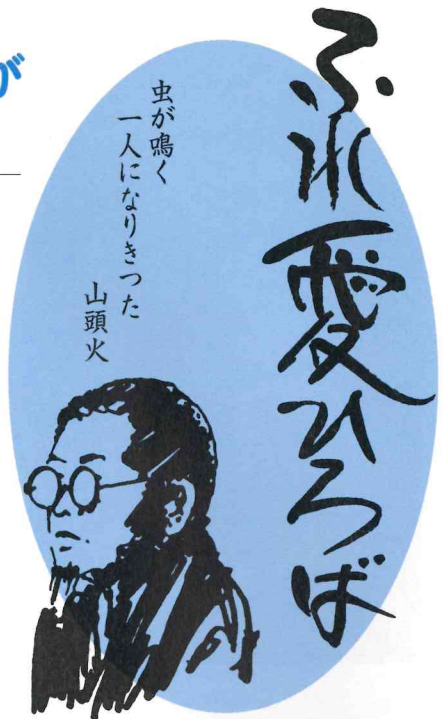 ふれ愛ひろば
虫が鳴く
一人になりきつた
山頭火
が